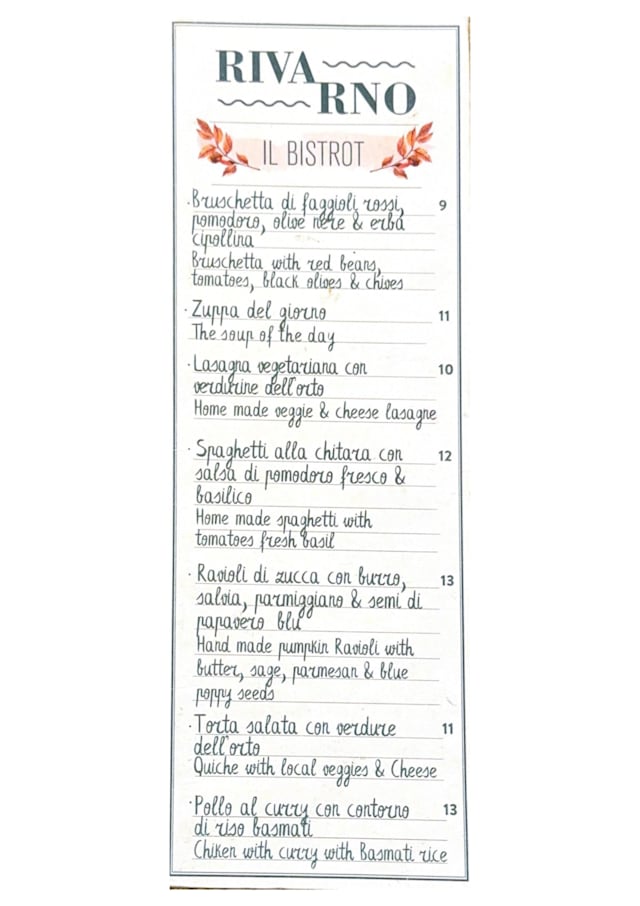 RIVA
RNO
IL BISTROT
·Bruschetta di faggioli rossi, 9
pomodoro, olive nere & erba
cipollina
Bruschetta with red beans,
tomatoes, black olives & chives
·Zuppa del giorno 11
The soup of the day
·Lasagna vegetariana con 10
verdurine dell'orto
Home made veggie & cheese lasagne
·Spaghetti alla chitara con 12
salsa di pomodoro fresco &
basilico
Home made spaghetti with
tomatoes fresh basil
·Ravioli di zucca con burro, 13
salvia, parmiggiano & semi di
papavero blu
Hand made pumpkin Ravioli with
butter, sage, parmesan & blue
poppy seeds
·Torta salata con verdure 11
dell'orto
Quiche with local veggies & Cheese
·Pollo al curry con contorno 13
di riso basmati
Chiken with curry with Basmati rice